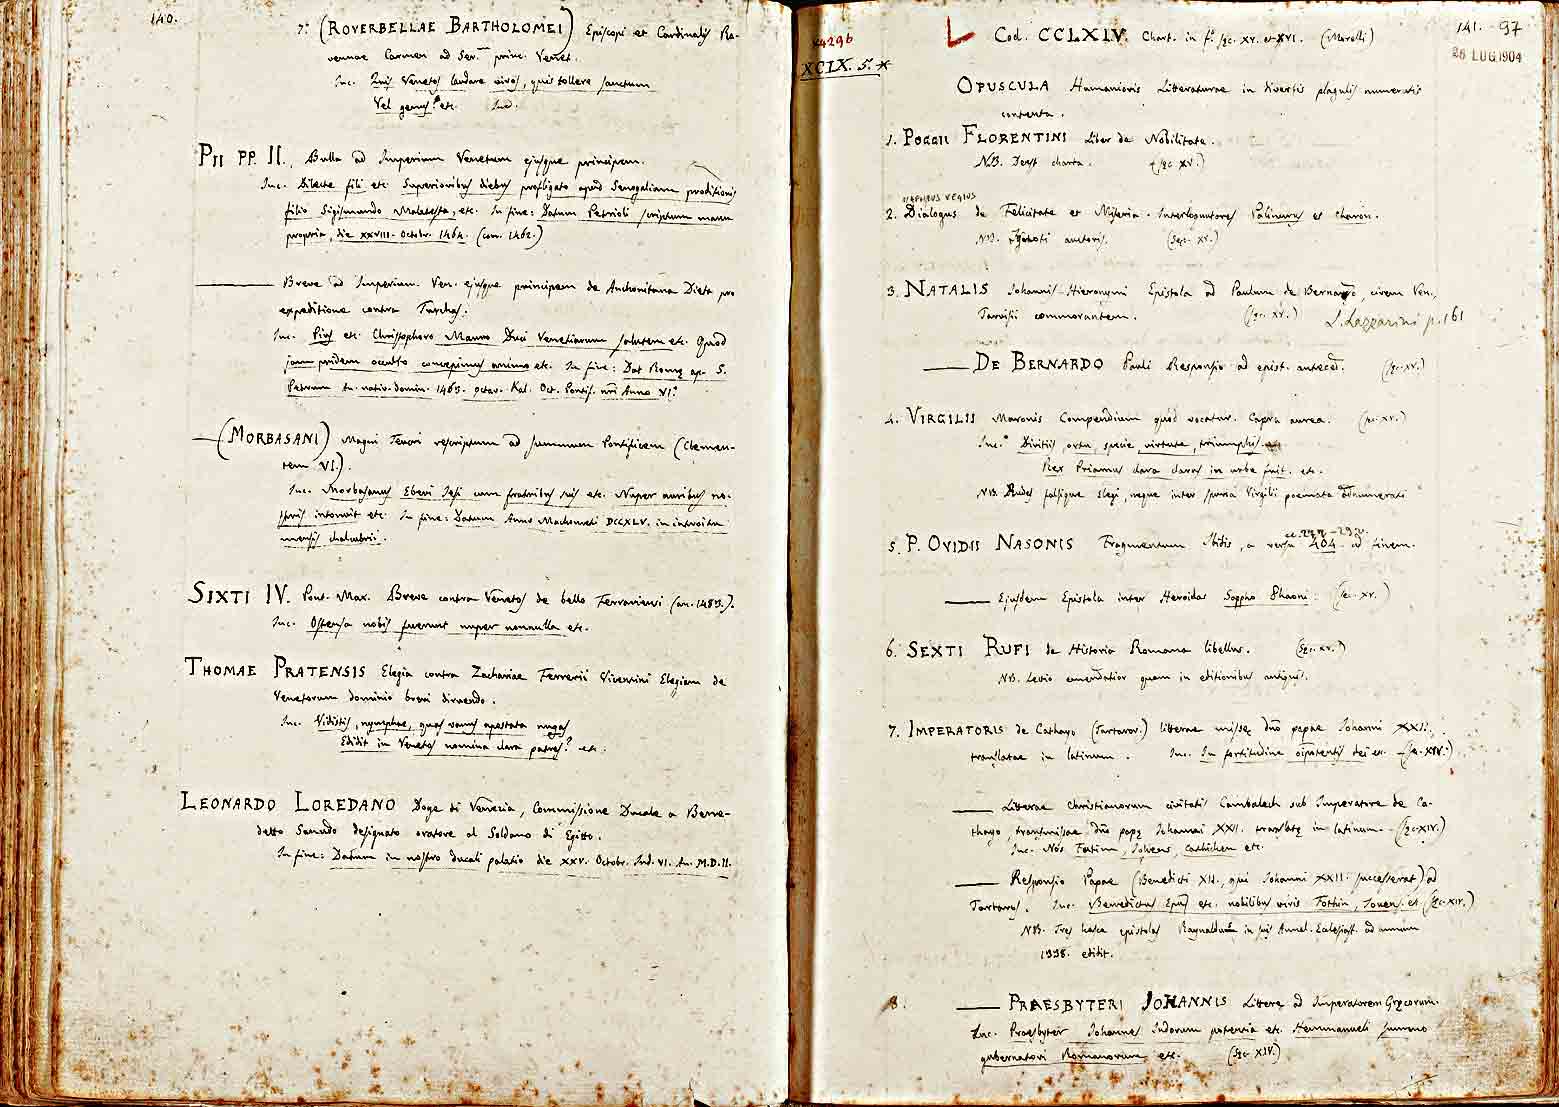 140.
7.° (ROVERBELLAE BARTHOLOMEI) Episcopi et Cardinalis Ra-
vennae Carmen ad Ser. princ. Venet.
Inc. Quis Venetos laudare viros, quis tollere sanctum
Vel genus? etc. Ined.
PII PP. II. Bulla ad Imperium Venetum ejusque principem.
Inc. Dilecte fili etc. Superioribus diebus profligato apud Senogaliam proditionis
filio Sigismundo Malatesta, etc. In fine: Datum Petrioli scriptum manu
propria, die XXVIII. Octobr. 1464. (corr. 1462.)
Breve ad Imperium Ven. ejusque principem de Anchonitana Dieta pro
expeditione contra Turchos.
Inc. Pius etc. Christophoro Mauro Duci Venetiarum salutem etc. Quod
jam pridem occulto concepimus animo etc. In fine: Dat Romę ap. S.
Petrum an. nativ. domin. 1463. octav. Kal. Oct. Pontif. nri Anno VI.°
(MORBASANI) Magni Teucri rescriptum ad summum Pontificem (Clemen-
tem VI.).
Inc. Morbasanus Ebeni Jesi cum fratribus suis etc. Nuper auribus no-
stris intonuit etc. In fine: Datum Anno Machometi DCCXLV. in introitu
mensis chalcabrii.
SIXTI IV. Pont. Max. Breve contra Venetos de bello Ferrariensi (an. 1483.).
Inc. Ostensa nobis fuerunt nuper nonnulla etc.
THOMAE PRATENSIS Elegia contra Zachariae Ferrerii Vicentini Elegiam de
Venetorum dominio brevi diruendo.
Inc. Vidistis, nymphae, quas vanus apostata nugas
Edidit in Venetos nomina clara patres? etc.
LEONARDO LOREDANO Doge di Venezia, Commissione Ducale a Bene-
detto Sanudo designato oratore al Soldano di Egitto.
In fine: Datum in nostro ducali palatio die XXV. Octobr. Ind. VI. An. M.D.II.
141. 97
26 LUG. 1904
4296
XCIX. 5. *
Cod. CCLXIV. Chart. in f.° sęc. XV. et XVI. (Morelli)
OPUSCULA Humanioris Litteraturae in diversis plagulis numeratis
contenta.
1. POGGII FLORENTINI Liber de Nobilitate.
NB. Deest charta. (sęc. XV.)
MAPHEUS VEGIUS
2. Dialogus de Felicitate et Miseria. Interloquutores Palinurus et Charon.
NB. Ignoti auctoris. (Sęc. XV.)
3. NATALIS Johannis Hieronymi Epistola ad Paulum de Bernardo, civem Ven.,
Tarvisii commorantem. (sęc. XV.) L. Lazzarini p. 161
DE BERNARDO Pauli Responsio ad epist. anteced. (sęc. XV.)
4. VIRGILII Maronis Compendium quod vocatur Capra aurea. (sęc. XV.)
Inc.° Divitiis, ortu, specie, virtute, triumphis
Rex Priamus clara clarus in urbe fuit. etc.
NB. Rudes falsique elegi, neque inter spuria Virgilii poemata adnumerati
5. P. OVIDII NASONIS Fragmentum Ibidis, a versu 404. ad finem.
Ejusdem Epistola inter Heroidas Sappho Phaoni. (sęc. XV.)
6. SEXTI RUFI de Historia Romana libellus. (Sęc. XV.)
NB. Lectio emendatior quam in editionibus antiquis.
7. IMPERATORIS de Cathayo (Tartaror.) litterae missę dno papae Johanni XXII.
translatae in latinum. Inc. In fortitudine oipotentis dei etc. (sęc. XIV.)
Litterae christianorum civitatis Cambalech sub Imperatore de Ca-
thayo transmissae dno papę Johanni XXII. translatę in latinum. (sęc. XIV.)
Inc. Nos Futim, Johens, Cathichen etc.
Responsio Papae (Benedicti XII., qui Johanni XXII. successerat) ad
Tartaros. Inc. Benedictus Epus etc. nobilibus viris Fothin, Joens. etc (sęc. XIV.)
NB. Tres hasce epistolas Raynaldus in suis Annal. Ecclesiast. ad annum
1338. edidit.
8. PRAESBYTERI JOHANNIS Litterę ad Imperatorem Gręcorum.
Inc. Praesbyter Johannes Indorum potentia etc. Hemmanueli summo
gubernatori Romanorum etc. (Sęc. XIV.)